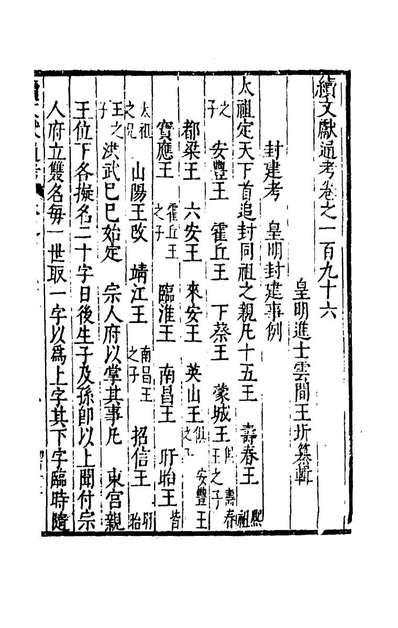 續文獻通考卷之一百九十六
皇明進士雲間王圻纂輯
封建考 皇明封建事例
太祖定天下首追封同祖之親凡十五王 壽春王熙祖
之子 安豐王 霍丘王 下蔡王 蒙城王俱壽春王之子
都梁王 六安王 來安王 英山王俱安豐王之子
寶應王霍丘王之子 臨淮王 南昌王 盱眙王皆
太祖之兄 山陽王改 靖江王南昌王之子 招信王盱眙
王之子 洪武己巳始定 宗人府以掌其事凡 東宮親
王位下各擬名二十字日後生子及孫卽以上聞付宗
人府立雙名每一世取一字以爲上字其下字臨時隨